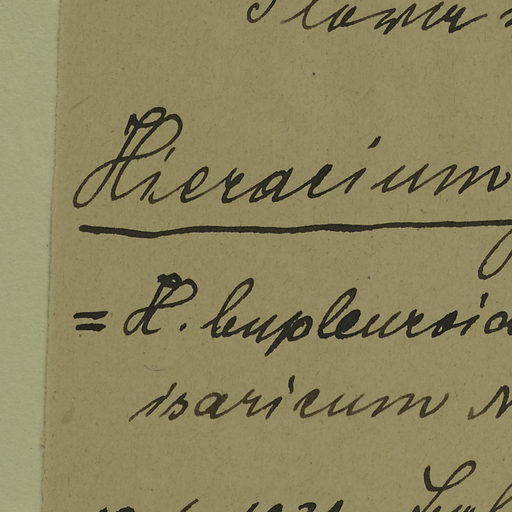 Flora
Hieracium
= H. bupleuroid
isaricum N